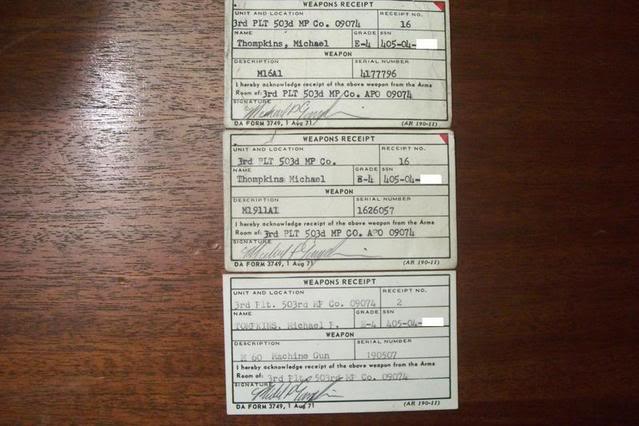 WEAPONS RECEIPT
UNIT AND LOCATION RECEIPT NO.
3rd PLT 503d MP Co. 09074 16
NAME GRADE SSN
Thompkins, Michael E-4 405-04-
WEAPON
DESCRIPTION SERIAL NUMBER
M16A1 4177796
I hereby acknowledge receipt of the above weapon from the Arms
Room of: 3rd PLT 503d MP Co. APO 09074
SIGNATURE
DA FORM 3749, 1 Aug 71 (AR 190-11)
WEAPONS RECEIPT
UNIT AND LOCATION RECEIPT NO.
3rd PLT 503d MP Co. 16
NAME GRADE SSN
Thompkins Michael E-4 405-04-
WEAPON
DESCRIPTION SERIAL NUMBER
M1911A1 1626057
I hereby acknowledge receipt of the above weapon from the Arms
Room of: 3rd PLT 503d MP CO. APO 09074
SIGNATURE
DA FORM 3749, 1 Aug 71 (AR 190-11)
WEAPONS RECEIPT
UNIT AND LOCATION RECEIPT NO.
3rd Plt. 503rd MP Co. 09074 2
NAME GRADE SSN
TOMPKINS, Michael P. E-4 405-04-
WEAPON
DESCRIPTION SERIAL NUMBER
M 60 Machine Gun 190507
I hereby acknowledge receipt of the above weapon from the Arms
Room of: 3rd Plt 503rd MP Co. 09074
SIGNATURE
DA FORM 3749, 1 Aug 71 (AR 190-11)